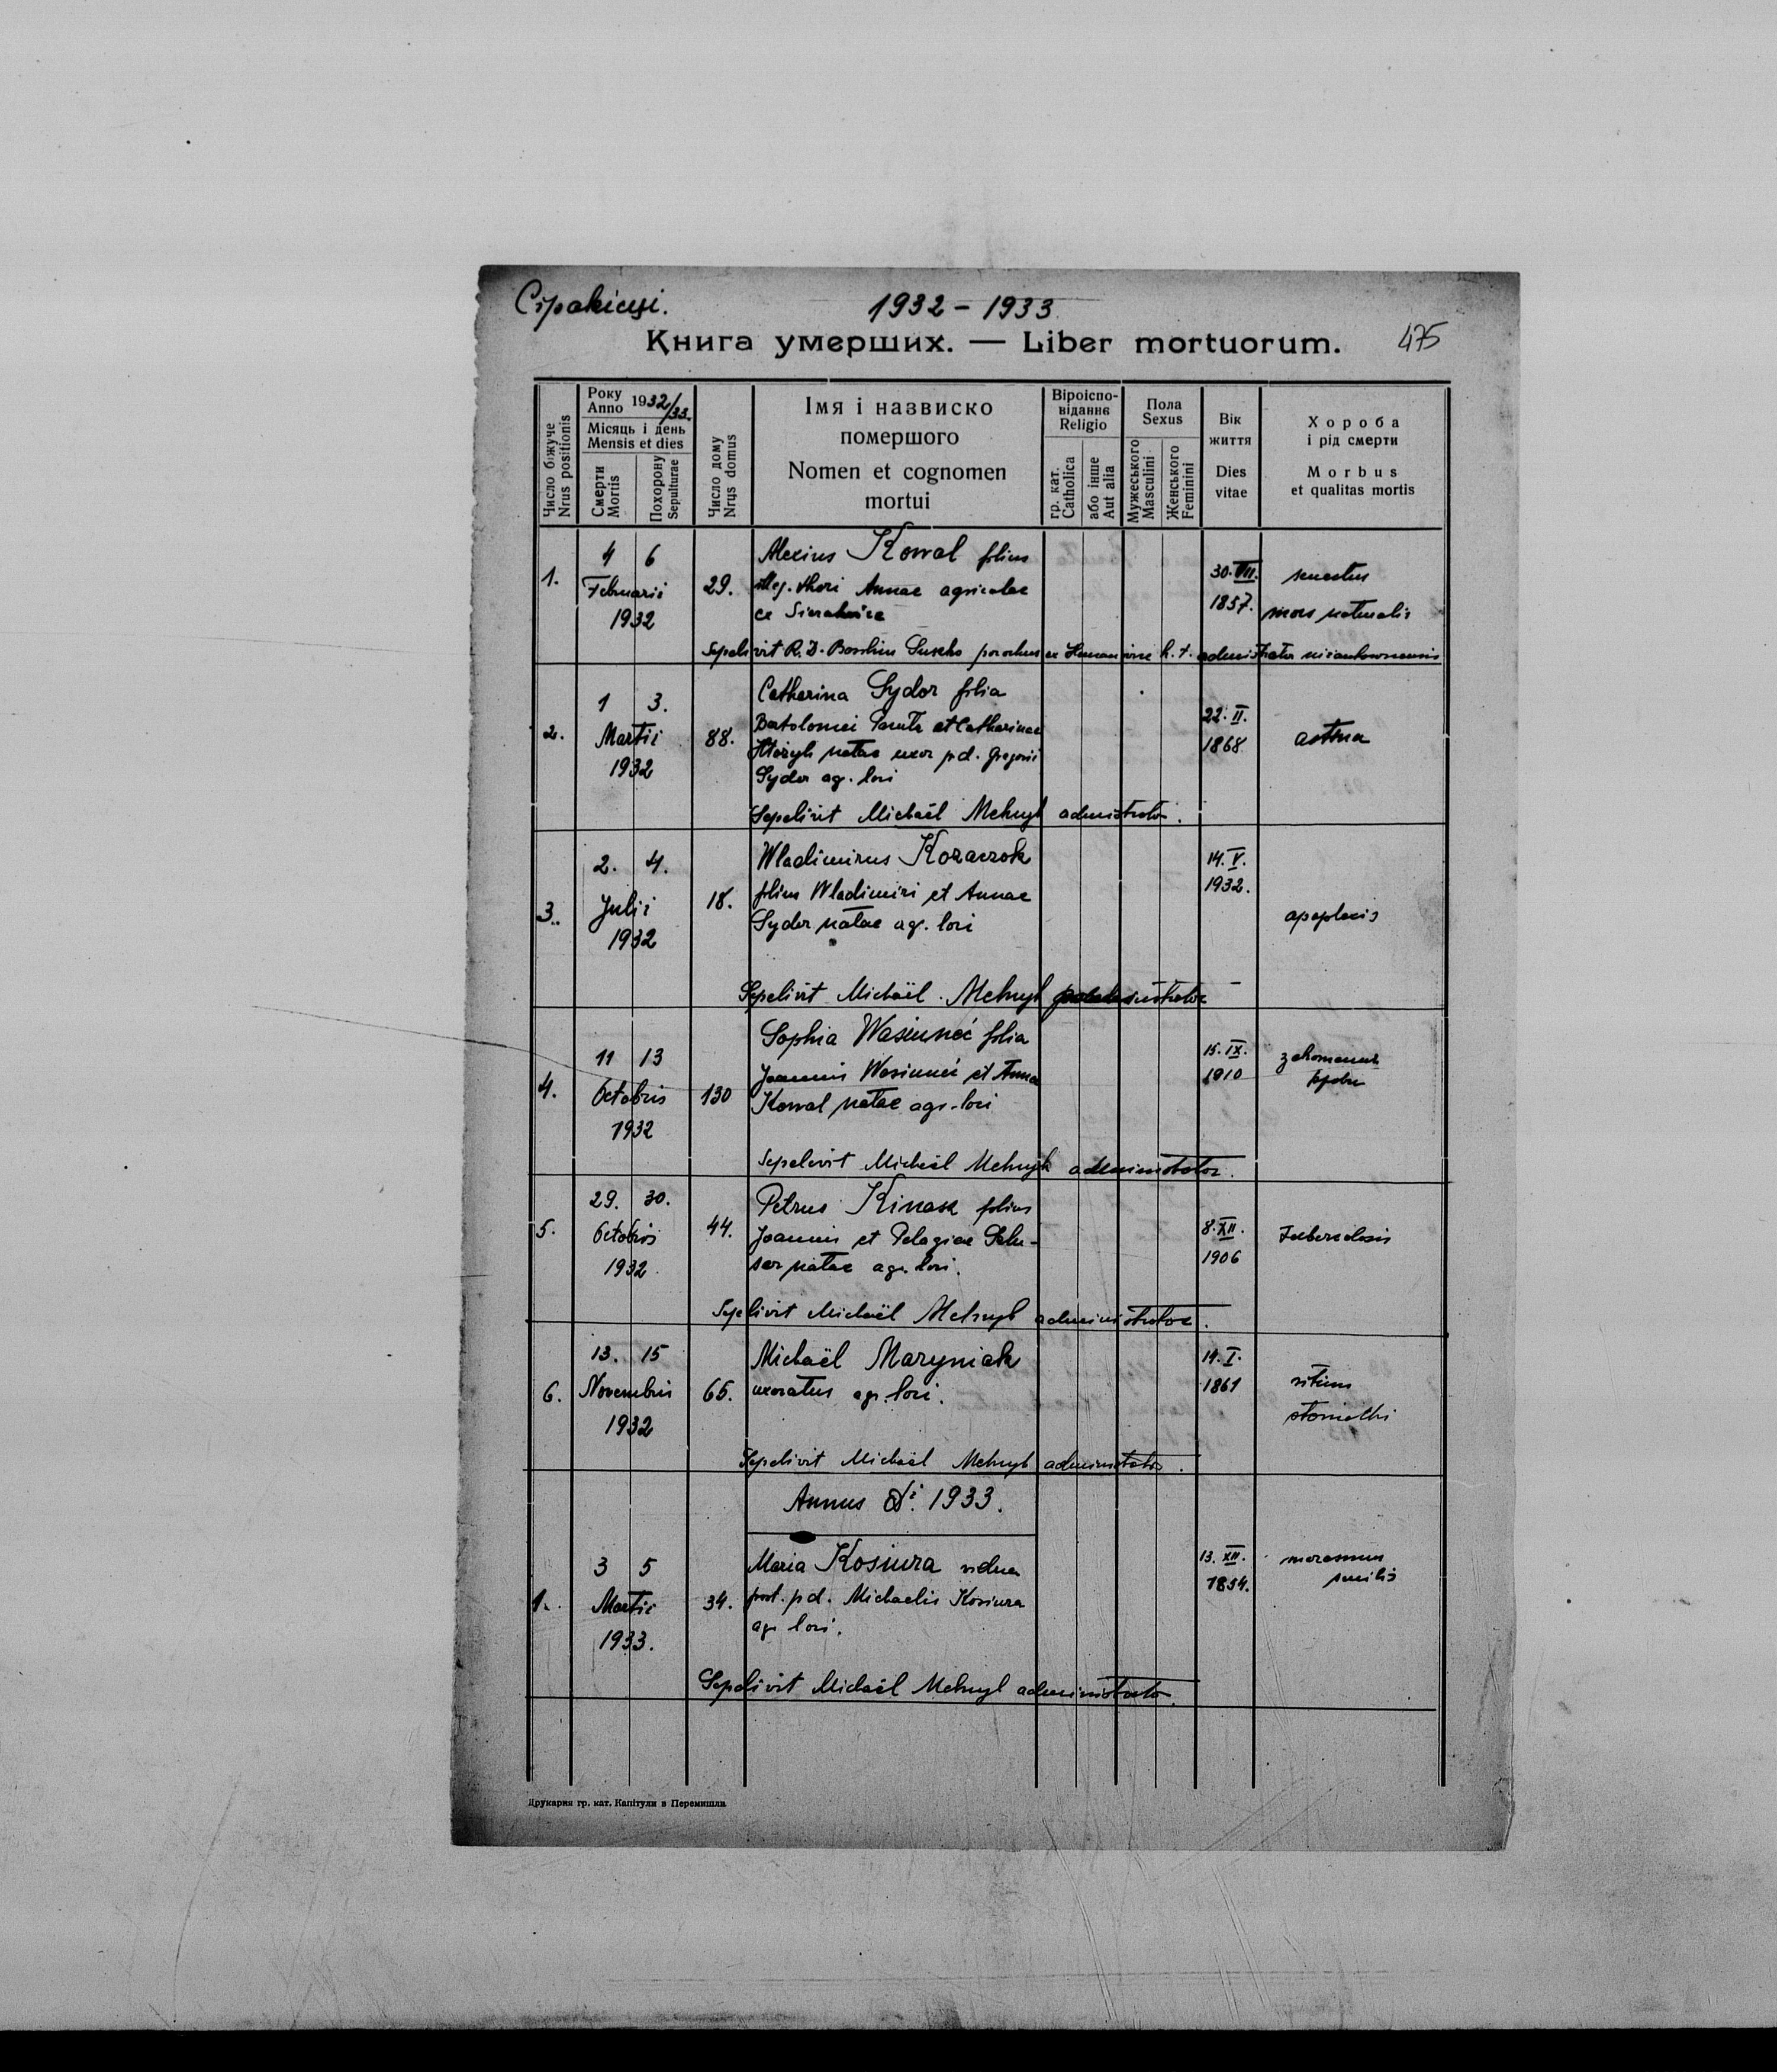 1932 – 1933
Книга умерших. — Liber mortuorum. 475
Число біжуче
Nrus positionis
Року
Anno 1932/33.
Місяць і день
Mensis et dies
Смерти
Mortis
Похорону
Sepulturae
Число дому
Nrus domus
Імя і назвиско
помершого
Nomen et cognomen
mortui
Віроіспо-
віданнє
Religio
гр. кат.
Catholica
або інше
Aut alia
Пола
Sexus
Мужеського
Masculini
Женського
Feminini
Вік
життя
Dies
vitae
Хороба
і рід смерти
Morbus
et qualitas mortis
1. 4 6
Februarii
1932
29.
Alexius Kowal filius
illeg. thori Annae agricolae
ex
30. VII.
1857.
senectus
mors naturalis
Sepelivit R. D. parochus ex h. t. administrator
2. 1 3.
Martii
1932
88.
Catherina Sydor filia
Bartolomei et Catharinae
natae uxor p.d. Gregorii
Sydor ag. loci
22. II.
1868
astma
Sepelivit Michaël Melnyk administrator.
3. 2. 4.
Julii
1932
18.
Wladimirus Kozaczok
filius Wladimiri et Annae
Sydor natae ag. loci
14. V.
1932.
apoplexis
Sepelivit Michaël Melnyk
4. 11 13
Octobris
1932
130
Sophia filia
Joannis et Anna
Kowal natae agr. loci
15. IX.
1910
Sepelivit Michaël Melnyk administrator.
5. 29. 30.
Octobris
1932
44.
Petrus Kinasz filius
Joannis et Pelagiae
natae agr. loci.
8. XII.
1906
Tuberculosis
Sepelivit Michaël Melnyk administrator.
6. 13. 15
Novembris
1932
65.
Michaël Maryniak
uxoratus agr. loci.
14. I.
1861
vitium
stomachi
Sepelivit Michaël Melnyk administrator.
Annus Di. 1933.
1. 3 5
Martii
1933.
34.
Maria Kosiura vidua
post. p.d. Michaelis Kosiura
agr loci.
13. XII.
1854.
marasmus
senilis
Sepelivit Michaël Melnyk administrator.
Друкарня гр. кат. Капітули в Перемишли